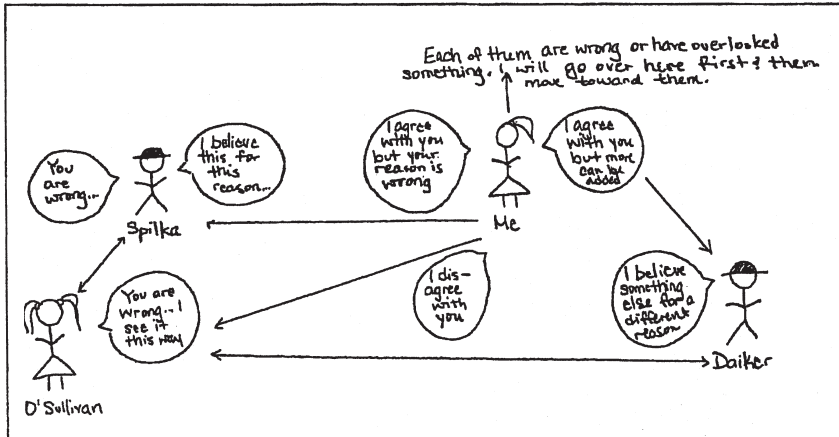 Each of them are wrong or have overlooked
something. I will go over here first & them
move toward them.
You
are
wrong...
I believe
this for
this
reason...
Spilka
I agree
with you
but your
reason is
wrong
I agree
with you
but more
can be
added
Me
You are
wrong... I
see it
this way
O'Sullivan
I dis-
agree
with
you
I believe
something
else for a
different
reason
Daiker